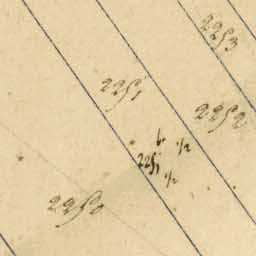 2253
2251
2252
b. 1/2
2251
1/2
2250